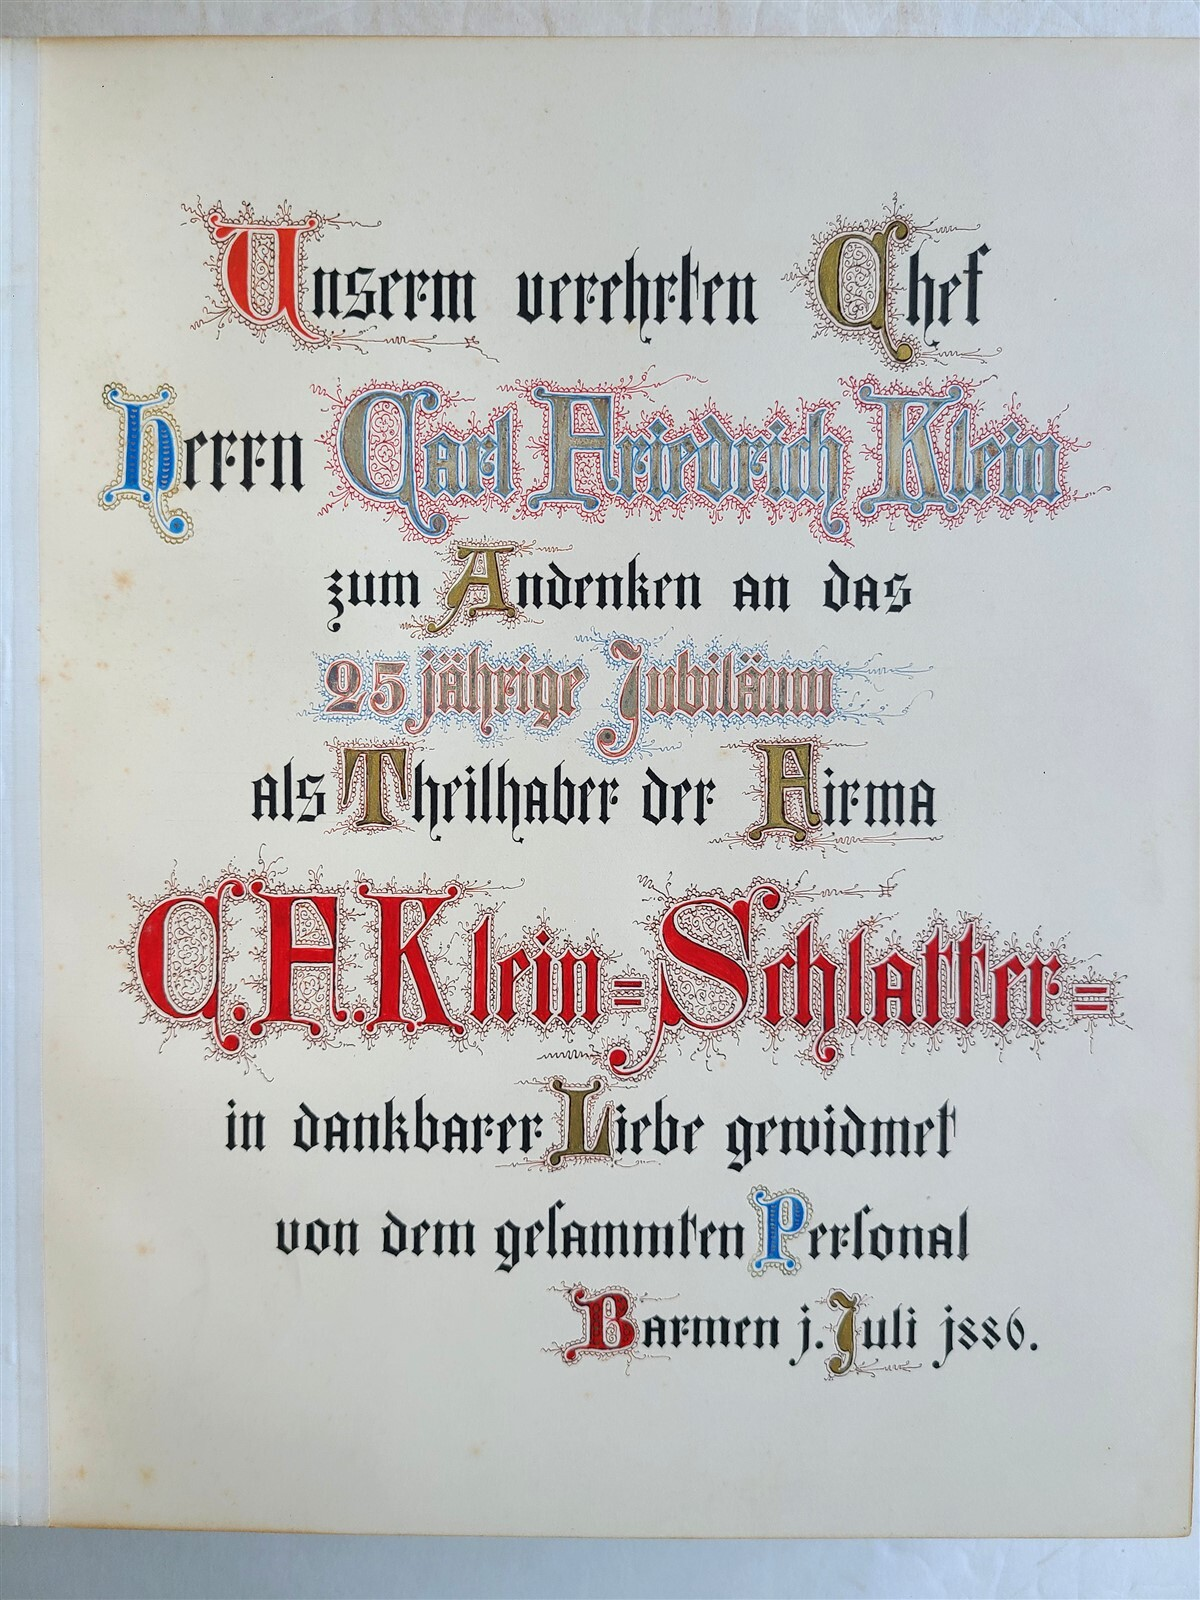 Unserm verehrten Chef
Herrn Carl Friedrich Klein
zum Andenken an das
25 jährige Jubiläum
als Theilhaber der Firma
C. F. Klein=Schlatter=
in dankbarer Liebe gewidmet
von dem gesammten Personal
Barmen 1. Juli 1886.